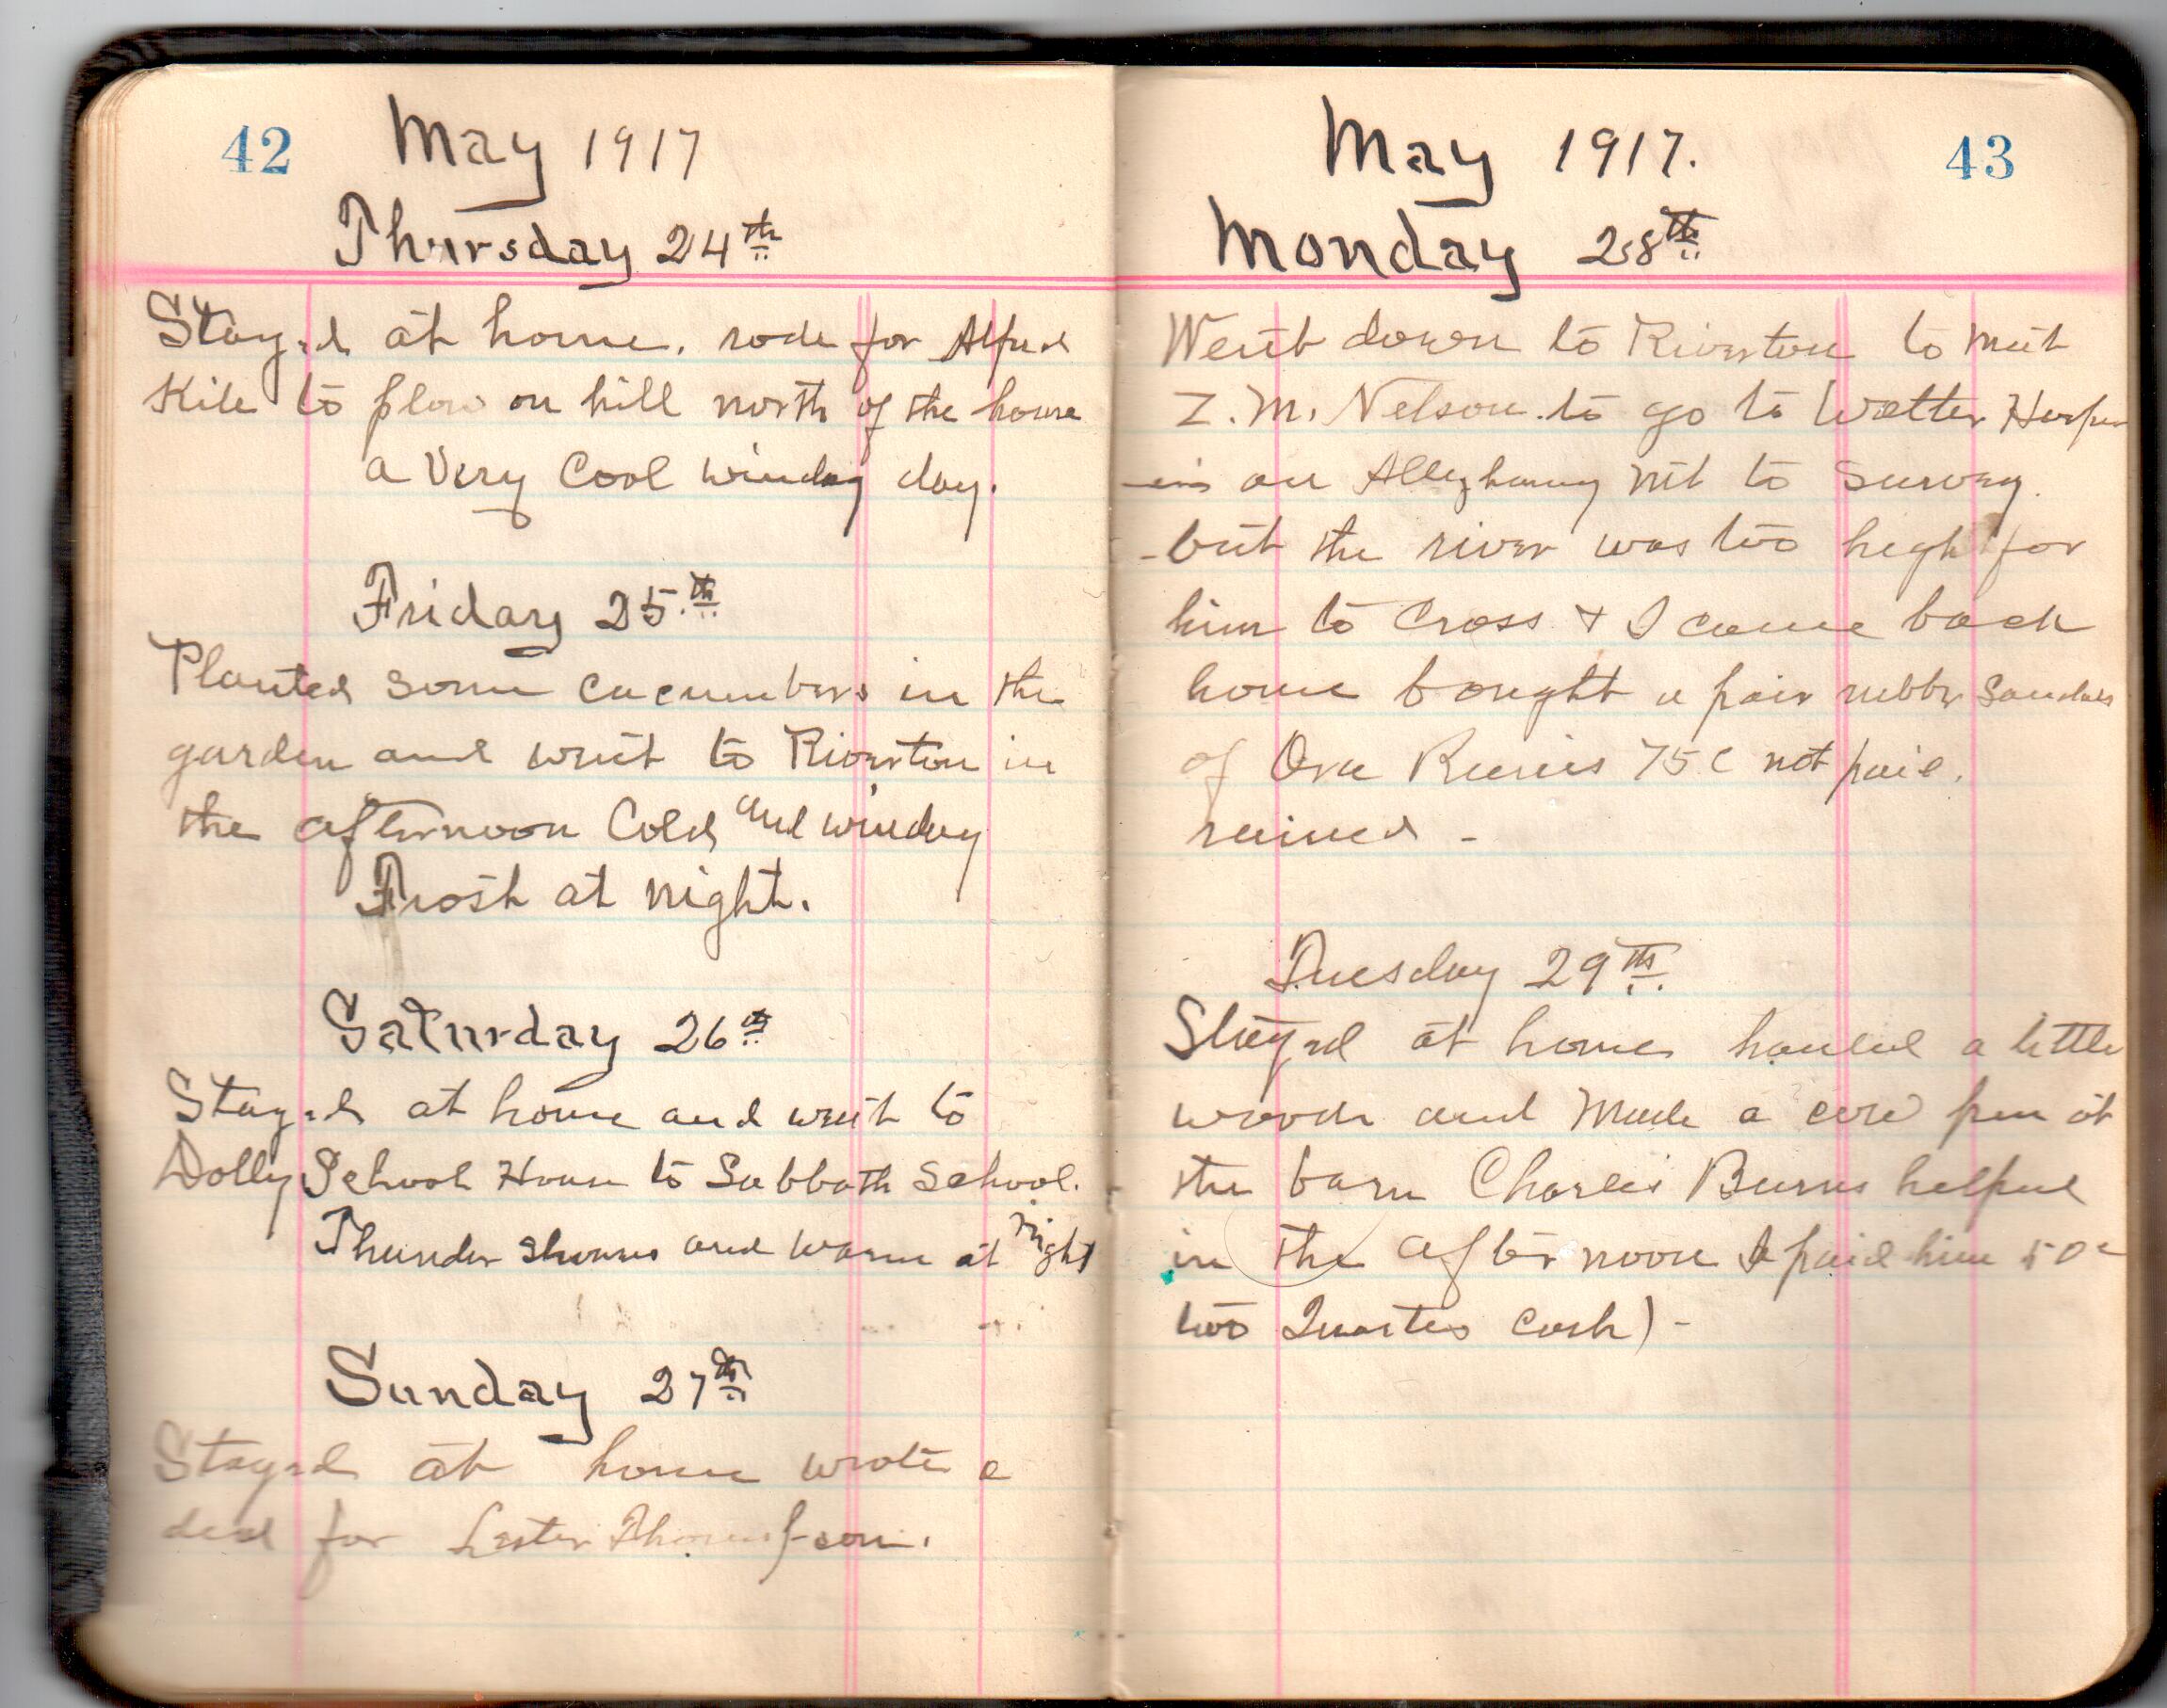 42 May 1917
Thursday 24th
Stayed at home. rode for Alfred
Kile to plow on hill north of the house
a Very Cool winday day.
Friday 25th
Planted some cucumbers in the
garden and went to Riverton in
the afternoon Cold and winday
Frost at night.
Saturday 26th
Stayed at home and went to
Dolly School House to Sabbath School.
Thunder showers and warm at night
Sunday 27th
Stayed at home wrote a
deed for Lester Thompson.
May 1917. 43
Monday 28th
Went down to Riverton to meet
Z. M. Nelson to go to Walter Harper
on Alleghany Mt to survey.
but the river was too high for
him to Cross & I came back
home bought a pair rubber Sandals
of Ora 75c not paid.
rained -
Tuesday 29th
Stayed at home hauled a little
wood and Made a pen at
the barn Charles Burns helped
in the afternoon I paid him 50c
two Quarters cash) -